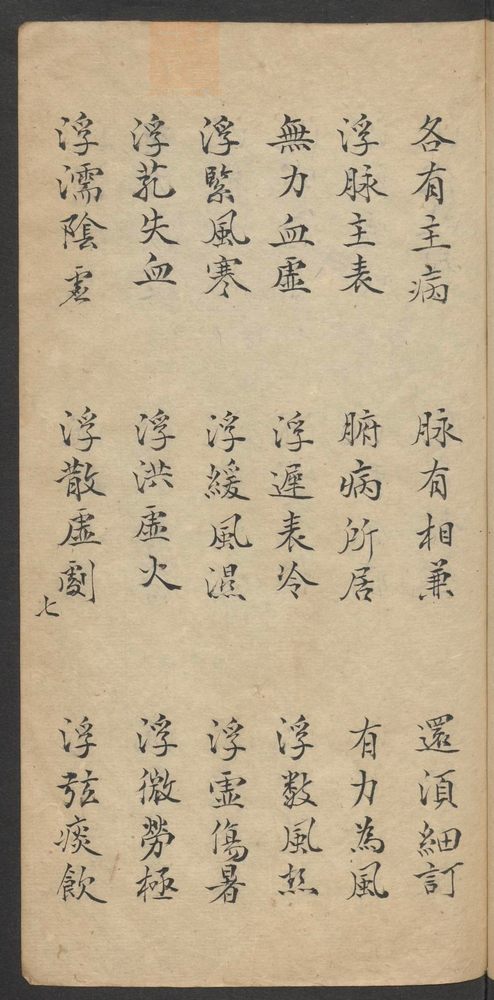 各有主病　脉有相兼　還須細訂
浮脉主表　腑病所居　有力為風
無力血虛　浮遲表冷　浮数風熱
浮緊風寒　浮緩風濕　浮虛傷暑
浮芤失血　浮洪虛火　浮微勞極
浮濡陰虛　浮散虛劇　浮弦痰飲
七